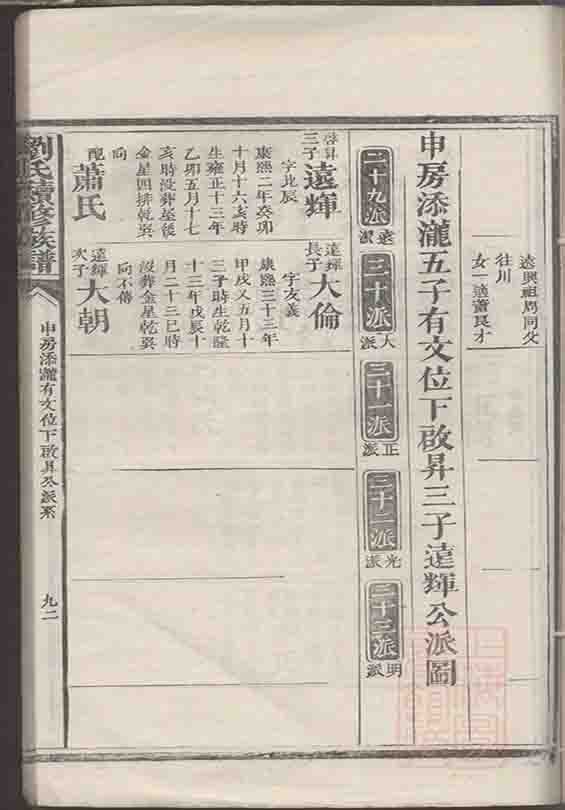 遠興祖馬同父
往川
女一適蕭良才
申房添瀧五子有文位下啟昇三子遠輝公派圖
二十九派
遠派
三十派
大派
三十一派
正派
三十二派
光派
三十三派
明派
啓昇
三子
遠輝
字北辰
康熙二年癸卯
十月十六亥時
生雍正十三年
乙卯五月十七
亥時没葬星後
金星四排乾巽
向
配蕭氏
遠輝
長子
大倫
字友義
康熙三十三年
甲戌又五月十
三子時生乾隆
十三年戊辰十
月二十三巳時
没葬金星乾巽
向不傳
遠輝
次子
大朝
劉氏續修族譜
申房添瀧有文位下啟昇公派系
九二